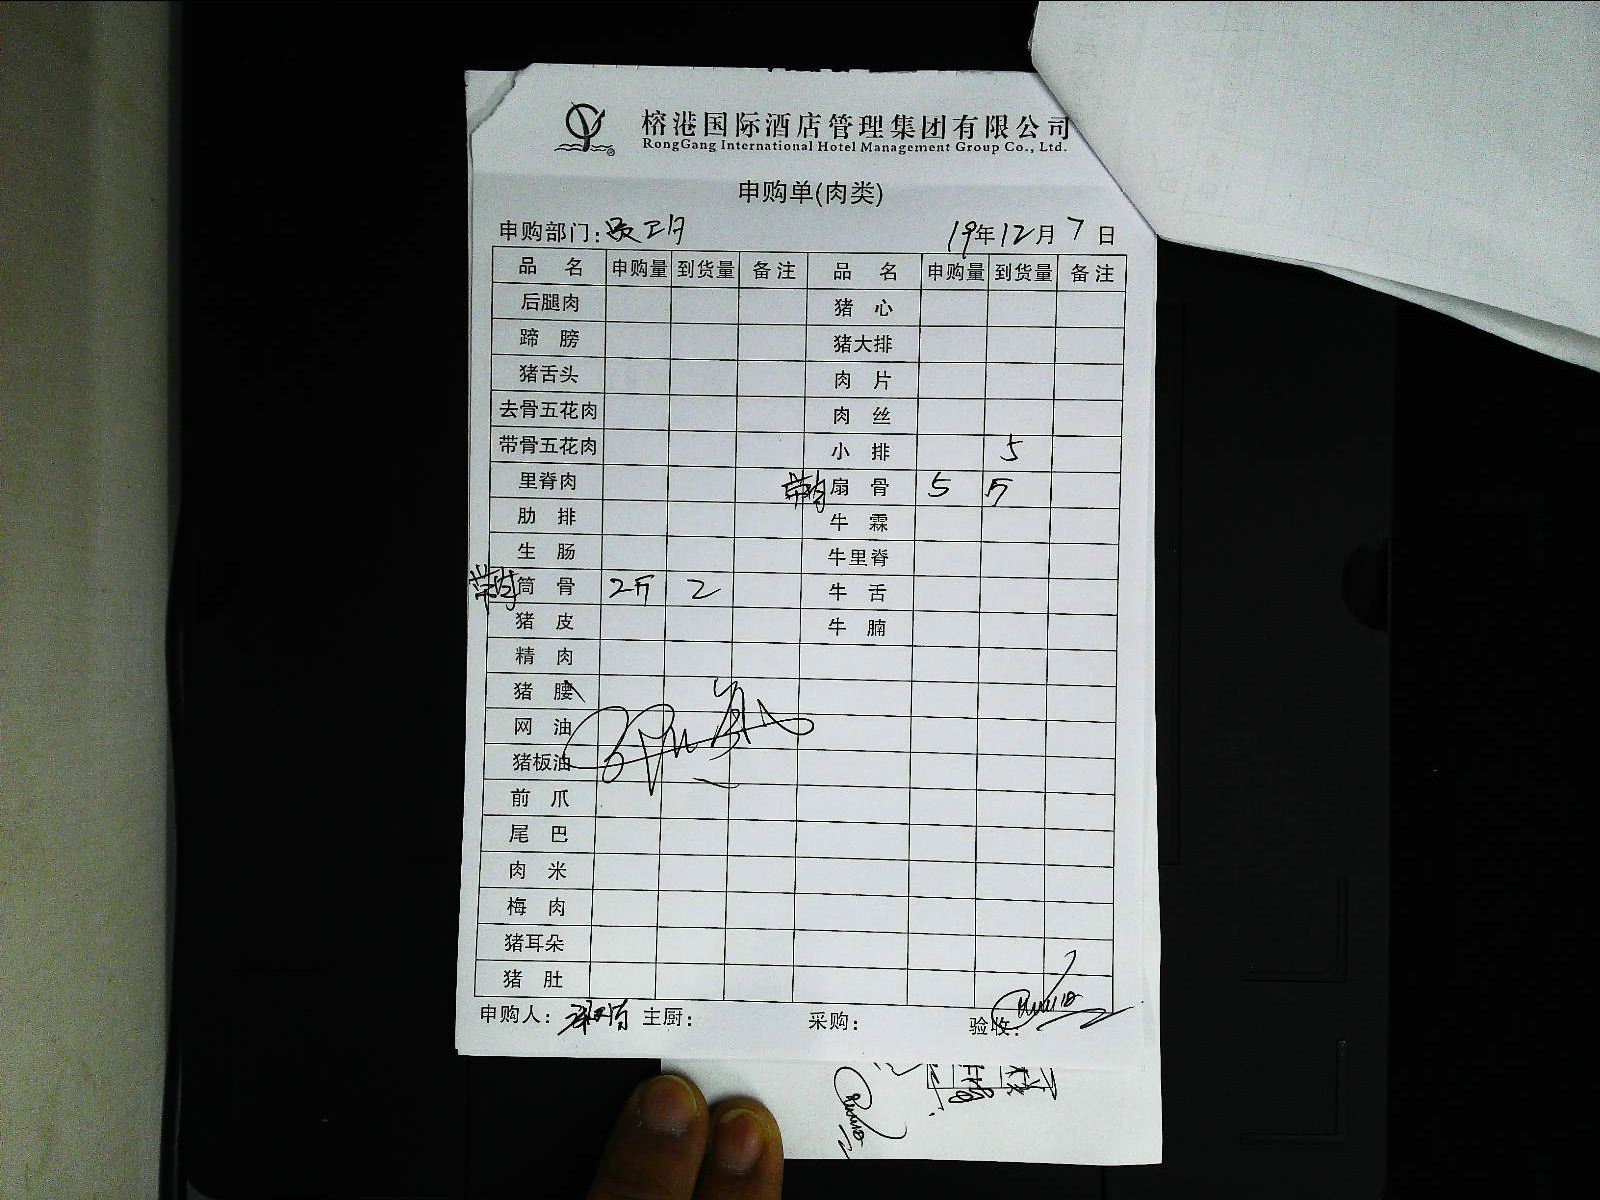 榕港国际酒店管理集团有限公司
RongGang International Hotel Management Group Co., Ltd.
申购单(肉类)
申购部门: 19年12月7日
品名 申购量 到货量 备注 品名 申购量 到货量 备注
后腿肉 猪心
蹄膀 猪大排
猪舌头 肉片
去骨五花肉 肉丝
带骨五花肉 小排 5
里脊肉 带肉 扇骨 5 斤
肋排 牛霖
生肠 牛里脊
带肉 筒骨 2斤 2 牛舌
猪皮 牛腩
精肉
猪腰
网油
猪板油
前爪
尾巴
肉米
梅肉
猪耳朵
猪肚
申购人: 主厨: 采购: 验收: